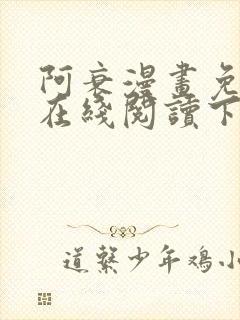 阿衰漫畫免
在綫閱讀下
道緊少年鸡小